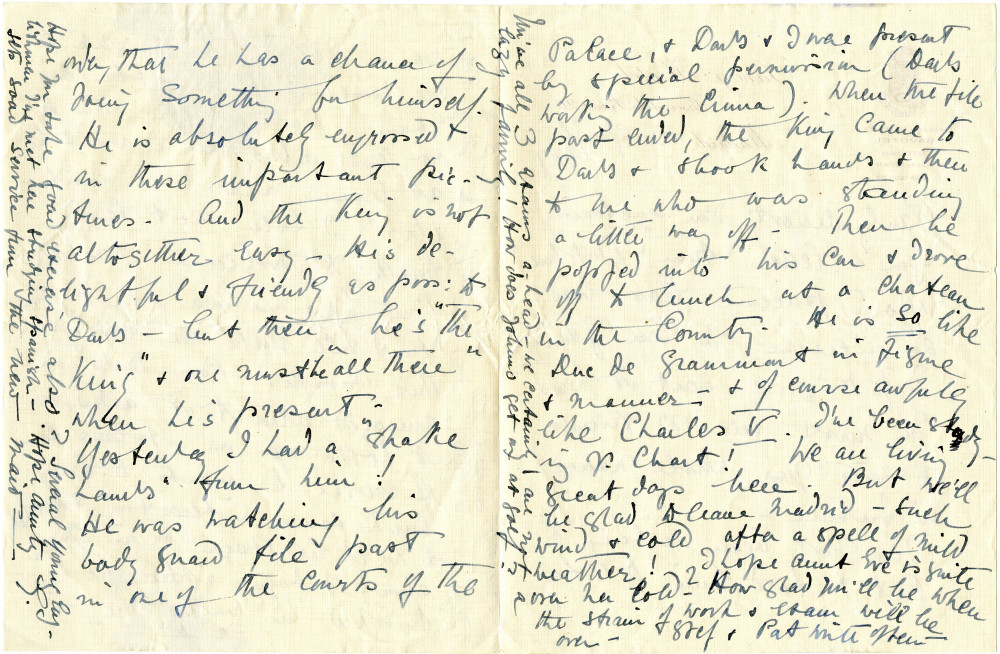 over, that he has a chance of
doing something for himself.
He is absolutely engrossed
in these important pic-
tures. And the King is not
altogether easy – He's de-
lightful & friendly as poss: to
Darls – but then he's "the
King" & one must be "all there"
when he's present –
Yesterday I had a "shake
hands" from him!
He was watching his
body guard file past
in one of the courts of the
Palace, & Darls & I were present
by special permission (Darls
waiting the Emma). When the file
past ended, the King came to
Darls & shook hands & then
to me who was standing
a little way off – Then he
popped into his car & drove
off to lunch at a chateau
in the Country. He is so like
Duc de Grammont in figure
& manner – & of course awfully
like Charles V. I've been study-
ing V. Chart! We are living
great days here. But we'll
be glad to leave Madrid – such
wind & cold after a spell of mild
weather! I hope aunt Eve is quite
over her cold – How glad we'll be when
the strain of work & exam will be
over – & Pat write often –
all 3 exams ahead – we certainly are not a
lazy family! How does Johns get on at golf?
Several young Eng-
lishmen I've met here studying Spanish – Hope aunty
gets good service from the new maid –